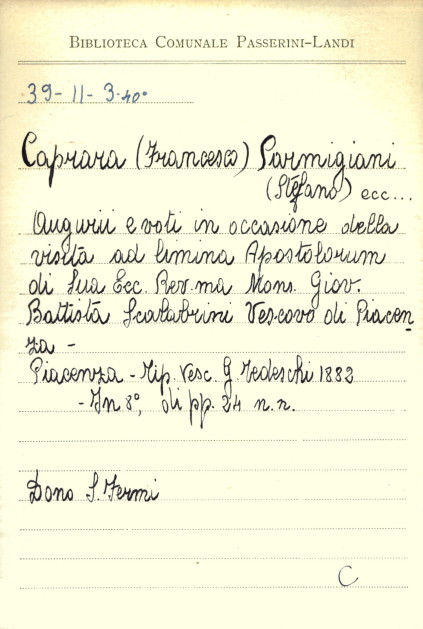 BIBLIOTECA COMUNALE PASSERINI-LANDI
39-11-3-40°
Caprara (Francesco) Parmigiani
(Stefano) ecc...
Augurii e voti in occasione della
visita ad limina Apostolorum
di Sua Ecc. Rev.ma Mons. Giov.
Battista Scalabrini Vescovo di Piacen
za -
Piacenza - Tip. Vesc. G. Tedeschi 1882
- In 8°, di pp. 24 n.n.
Dono S. Fermi
C